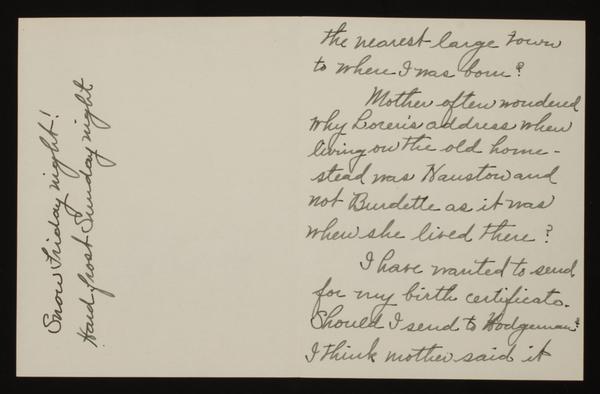 Snow Friday night!
Hard frost Sunday night
the nearest large town
to where I was born?
Mother often wondered
why Loren's address when
living on the old home-
stead was Hanston and
not Burdette as it was
when she lived there?
I have wanted to send
for my birth certificate.
Should I send to Hodgeman?
I think mother said it